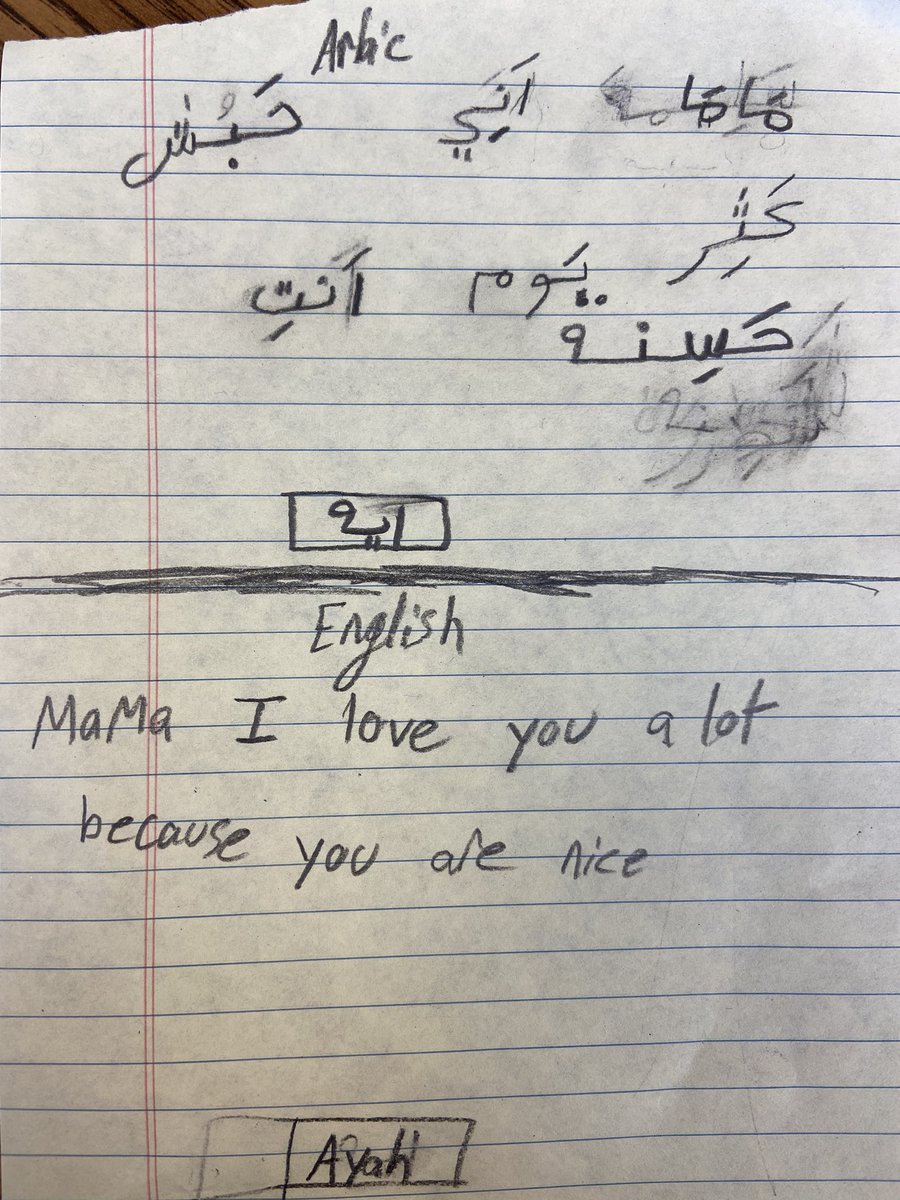 Arbic
مَامَا اَنِي حَبُش
كَثِر
يَوم اَنتِ
حَسِنه
ايه
English
MaMa I love you a lot
because you are nice
Ayah